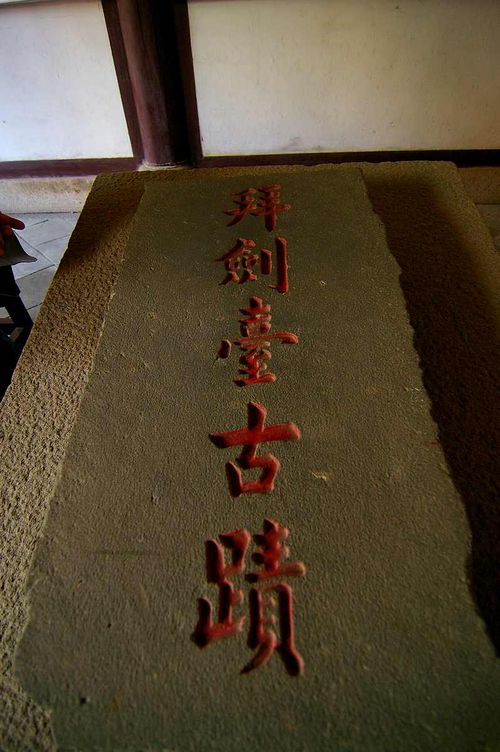 拜劍臺古蹟